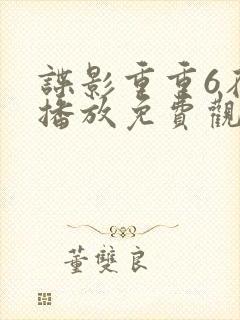 諜影重重6在
播放免費觀
董雙良